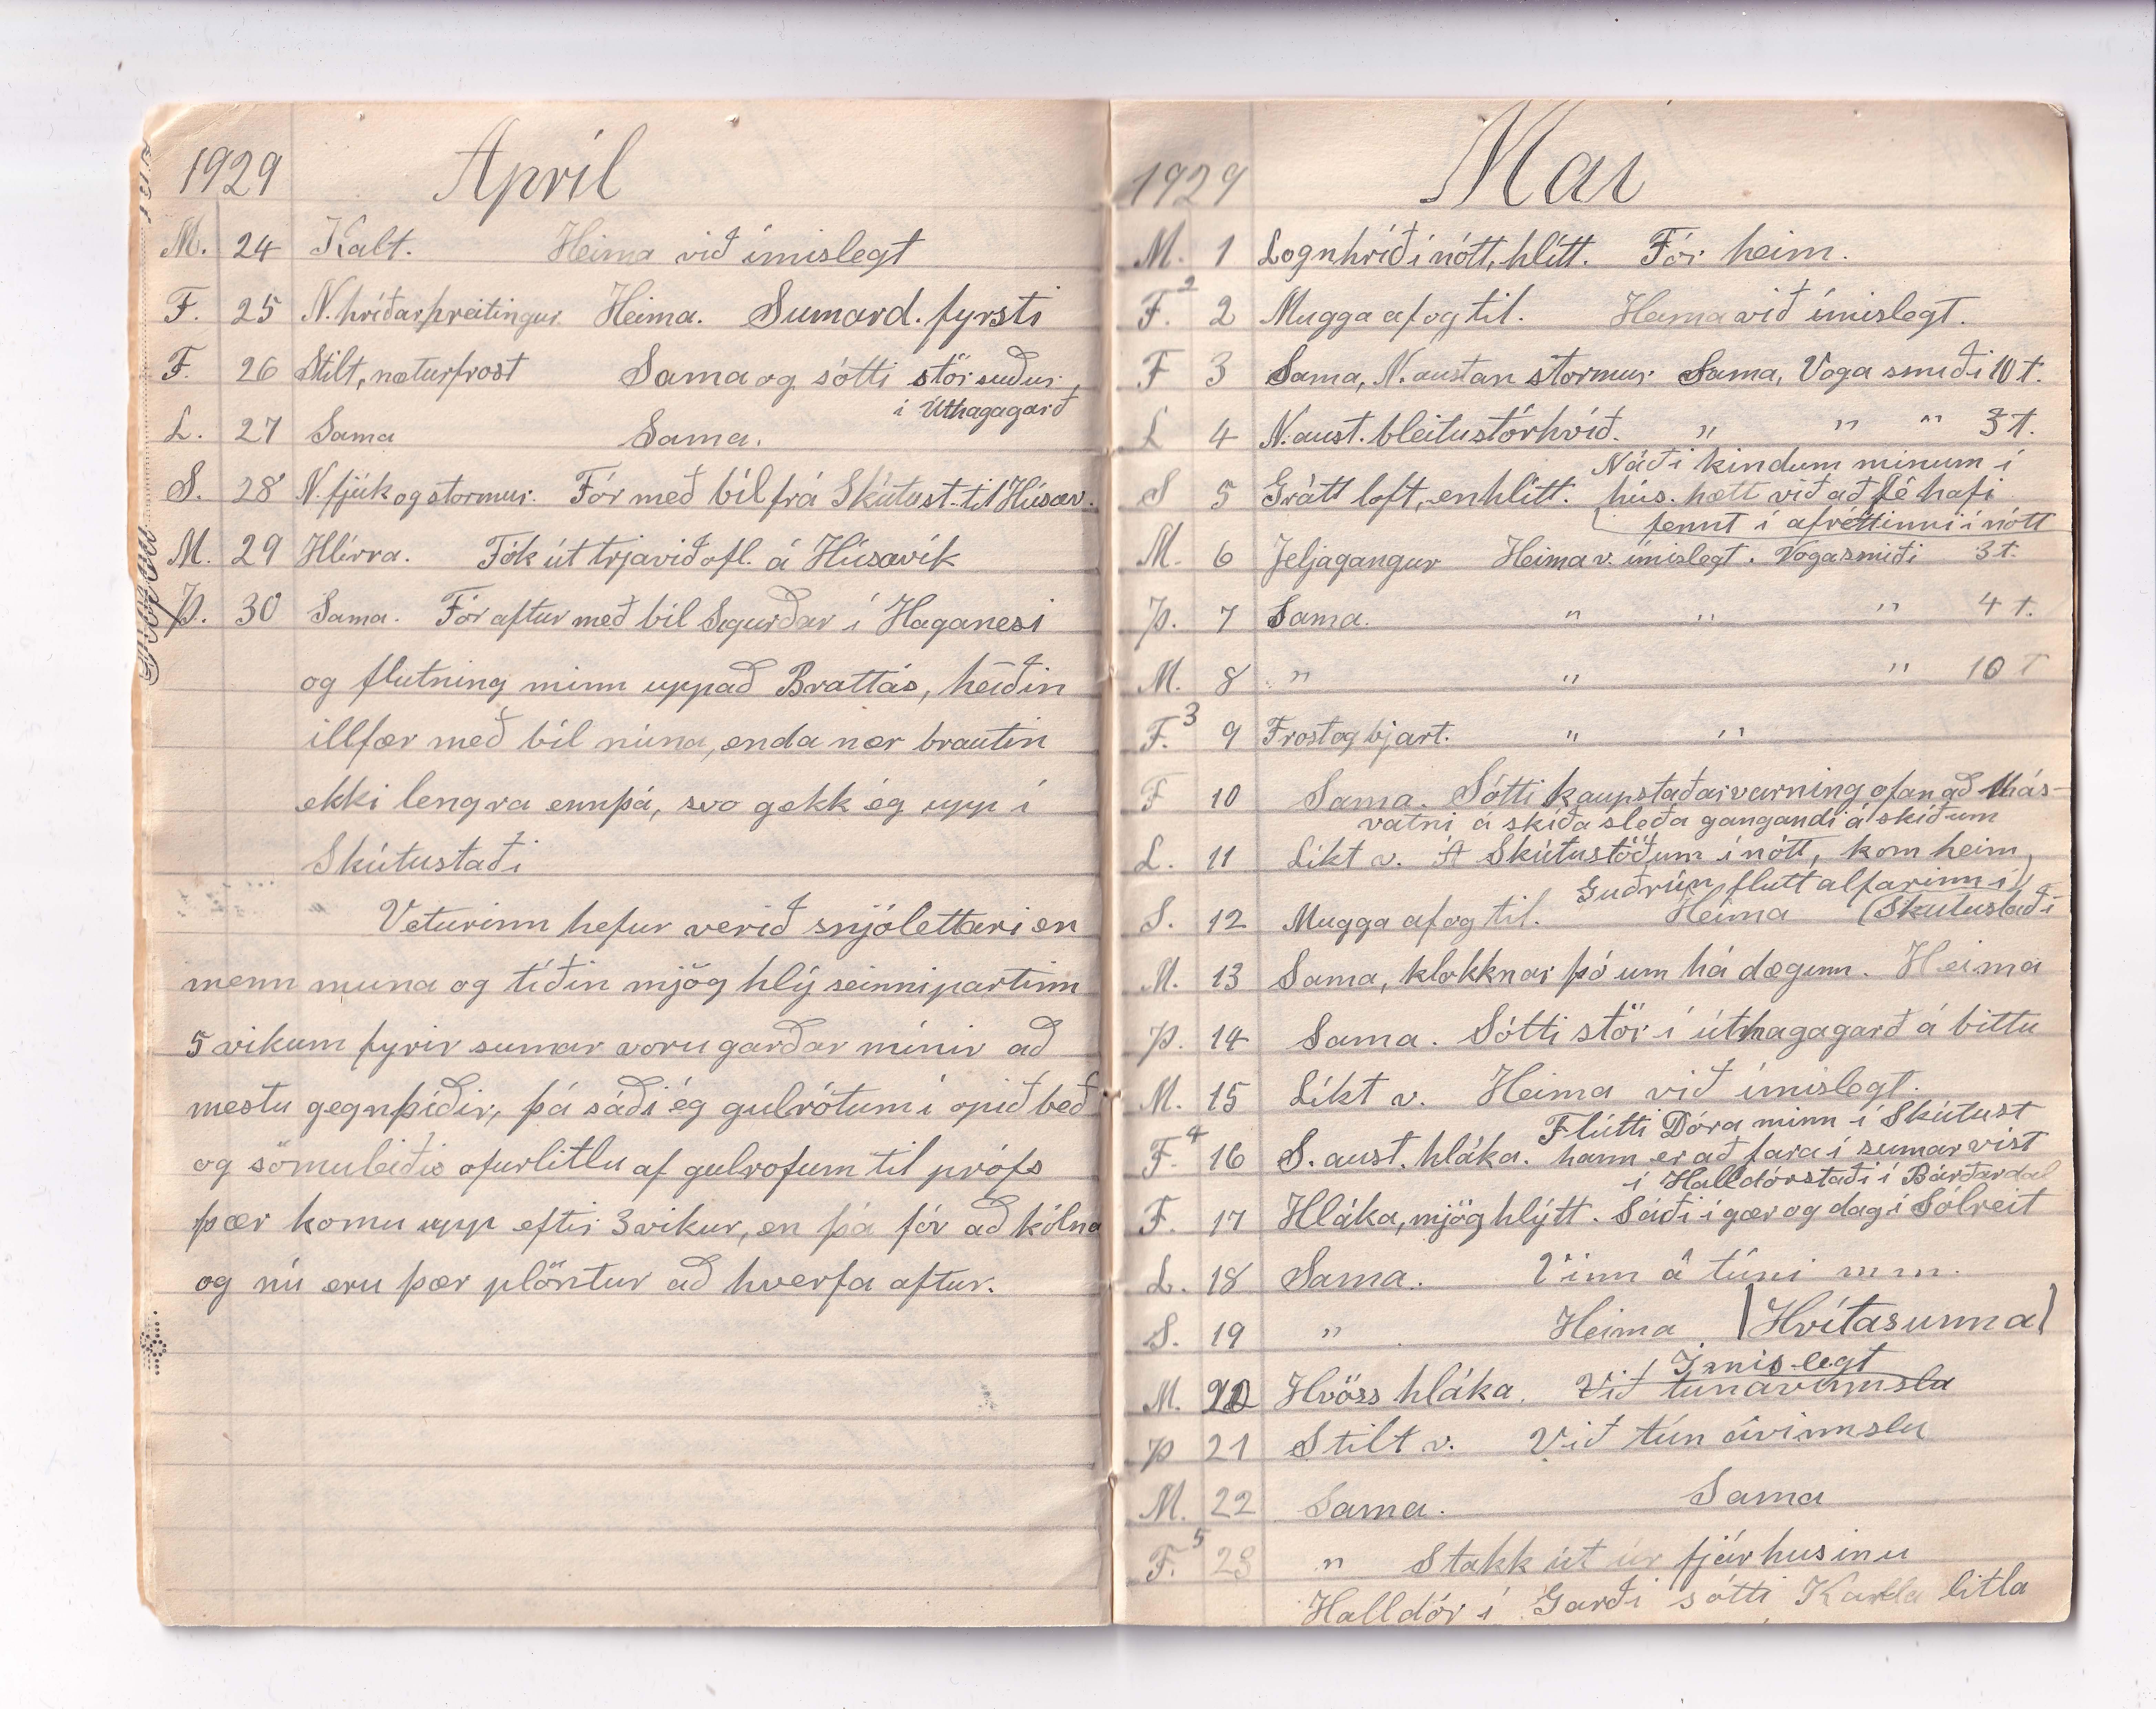 1929 Apríl
M. 24 Kalt. Heima við ímislegt
F. 25 N. hríðarhreitingur Heima. Sumard. fyrsti
F. 26 Stilt, næturfrost Sama og sótti stör suður
í Úthagagarð
L. 27 Sama Sama.
S. 28 N. fjúk og stormur. Fór með bíl frá Skútust. til Húsav.
M. 29 Hlírra. Tók út trjavið ofl. á Húsavík
Þ. 30 Sama. Fór aftur með bíl Sigurðar í Haganesi
og flutning minn uppað Brattás, heiðin
illfær með bíl núna, enda nær brautin
ekki lengra ennþá, svo gekk ég upp í
Skútustaði
Veturinn hefur verið snjólettari en
menn muna og tíðin mjög hlý seinnipartinn
5 vikum fyrir sumar voru garðar mínir að
mestu gegnþíðir, þá sáði ég gulrótum í opið beð
og sömuleiðis ofurlitlu af gulrofum til prófs
þær komu upp eftir 3 vikur, en þá fór að kólna
og nú eru þær plöntur að hverfa aftur.
1929 Mai
M. 1 Lognhríð í nótt, hlítt. Fór heim.
F. 2 2 Mugga af og til. Heima við ímislegt.
F 3 Sama, N. austan stormur Sama, Voga smíði 10 t.
L 4 N. aust. bleitustórhríð. " " " 3 t.
Náði kindum mínum í
S 5 Grátt loft, en hlítt. hús. hætt við að fé hafi
fennt í afréttinni í nótt
M. 6 Jeljagangur Heima v. ímislegt. Vogasmíði 3 t.
Þ. 7 Sama. " " " 4 t.
M. 8 " " " 10 T
F. 3 9 Frost og bjart. " "
F 10 Sama. Sótti kaupstaðarvarning ofan að Más-
vatni á skíða sleða gangandi á skíðum
L. 11 Líkt v. Á Skútustöðum í nótt, kom heim,
Guðrún flutt alfarinn í
S. 12 Mugga af og til. Heima (Skútustaði
M. 13 Sama, klokknar þó um há dæginn. Heima
Þ. 14 Sama. Sótti stör í úthagagarð á bittu
M. 15 Líkt v. Heima við ímislegt.
Flútti Dóra minn í Skútust
F. 4 16 S. aust. hláka. hann er að fara í sumarvist
í Halldórstaði í Bárðardal
F. 17 Hláka, mjög hlýtt. Sáði í gær og dag í Sólreit
L. 18 Sama. Vinn á túni m m.
S. 19 " Heima (Hvítasunna)
Ímislegt
M. 20 Hvöss hláka. Við túnávinnslu
Þ 21 Stilt v. Við tún ávinnslu
M. 22 Sama. Sama
F. 5 23 " Stakk út úr fjárhusinu
Halldór í Garði sótti Kalla litla